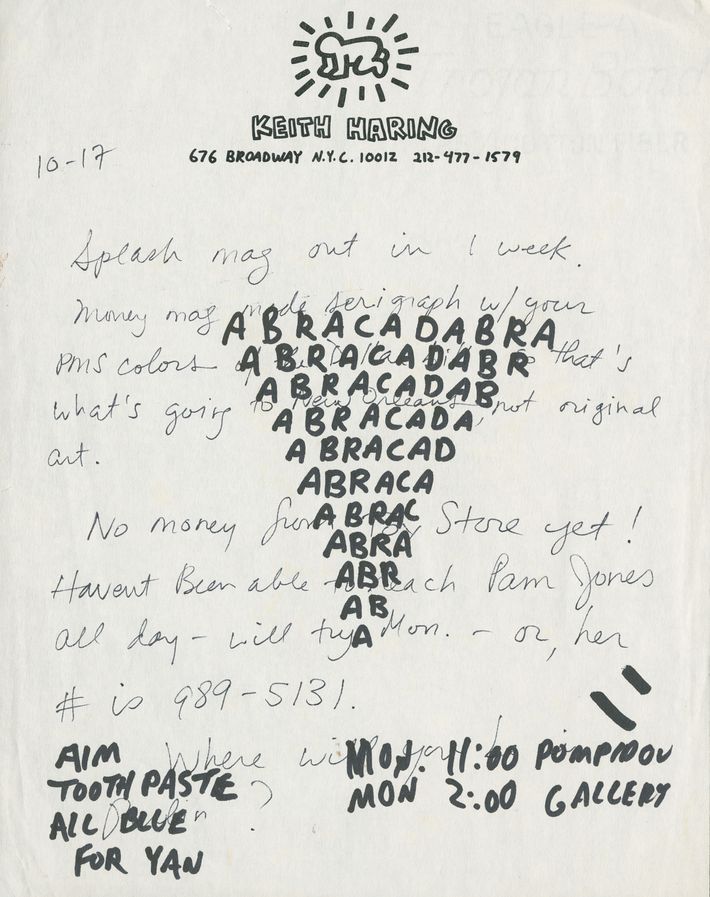 KEITH HARING
676 BROADWAY N.Y.C. 10012 212-477-1579
10-17
Splash mag out in 1 week.
Money mag made serigraph w/ your
ABRACADABRA
PMS colors that's
ABRACADABR
ABRACADAB
what's going to New Orleans, not original
ABRACADA
art.
ABRACAD
ABRACA
No money from Toy Store yet!
ABRAC
ABRA
Havent Been able to reach Pam Jones
ABR
AB
all day - will try Mon. - or, her
A
# is 989-5131.
Where will you
AIM
TOOTHPASTE
ALL BLUE
FOR YAN
MON. 11:00 POMPIDOU
MON 2:00 GALLERY